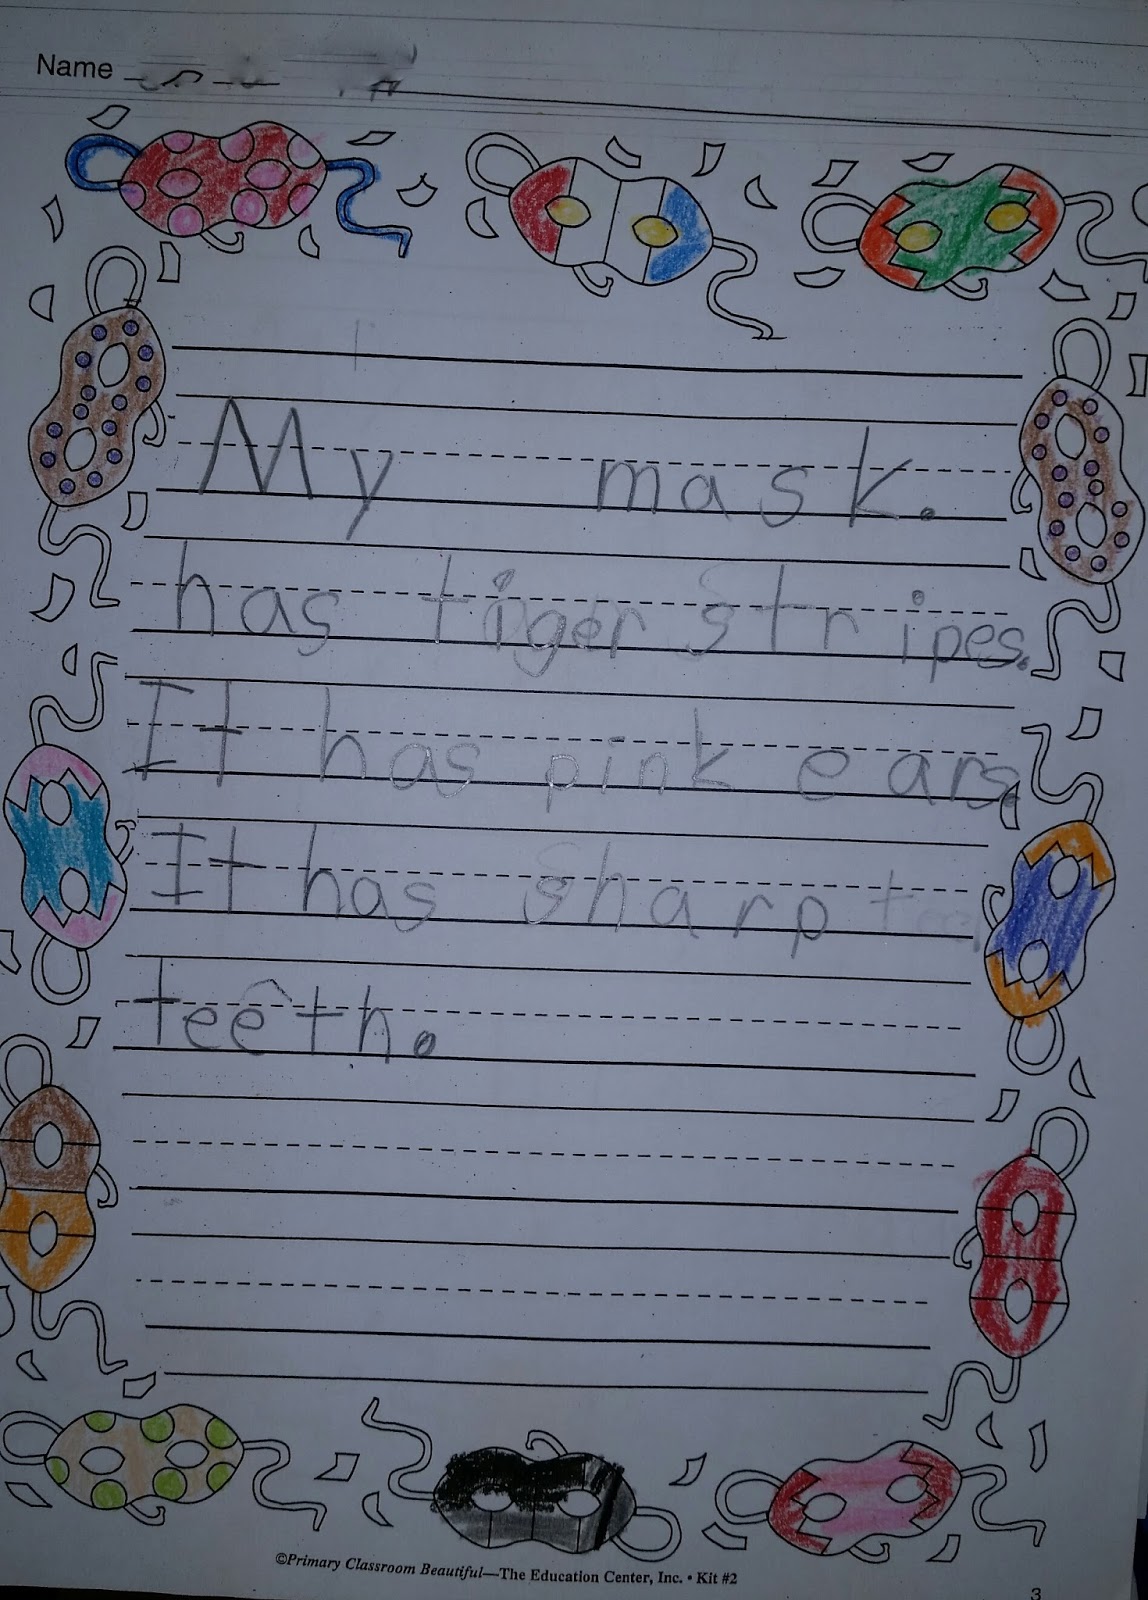 Name
My mask.
has tiger stripes.
It has pink ears.
It has sharp
teeth.
©Primary Classroom Beautiful—The Education Center, Inc. • Kit #2
3